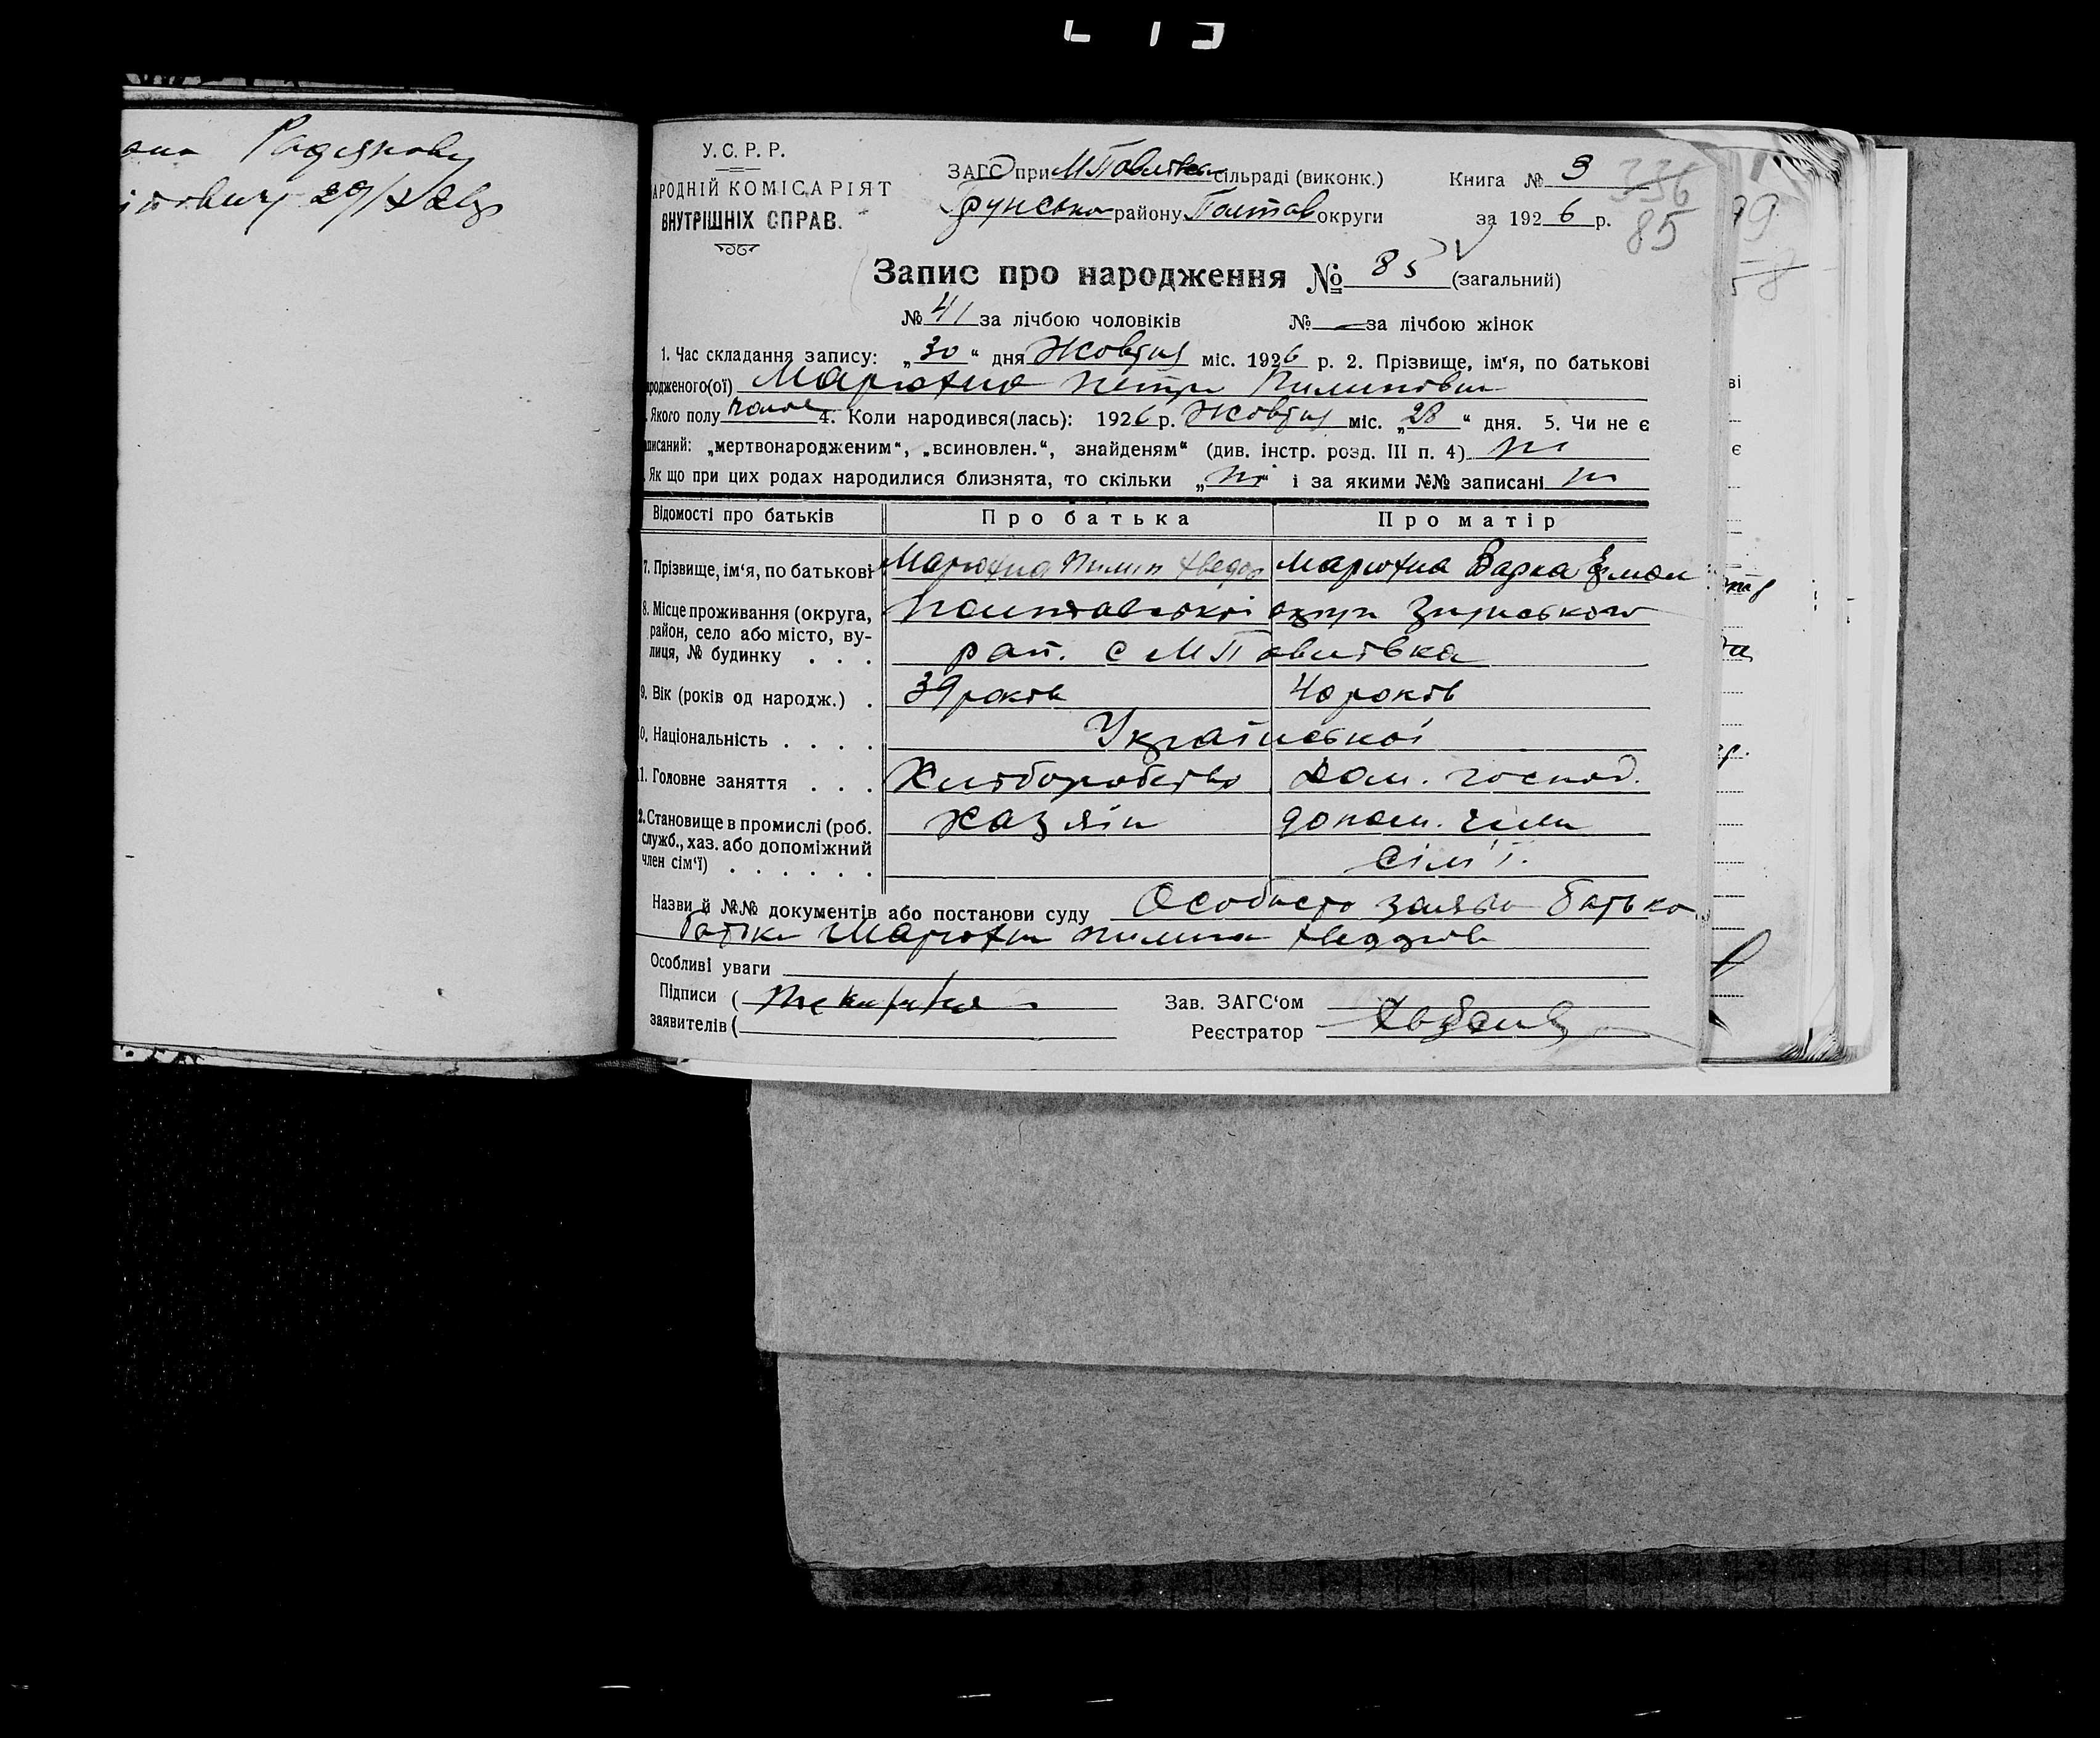 Радянову
29/X 26 р
У.С.Р.Р.
АРОДНІЙ КОМІСАРІЯТ
ВНУТРІШНІХ СПРАВ.
ЗАГС при МПавлівка сільраді (виконк.)
Грунського району Полтав округи
Книга № 3
за 1926 р.
336
85
Запис про народження № 85 (загальний)
№ 41 за лічбою чоловіків № — за лічбою жінок
1. Час складання запису: „30“ дня Жовтня міс. 1926 р. 2. Прізвище, ім‘я, по батькові
родженого(ої) Марюхна Петро Пилипович
Якого полу чолов 4. Коли народився(лась): 1926 р. Жовтня міс. „28“ дня. 5. Чи не є
писаний: „мертвонародженим“, „всиновлен.“, знайденям“ (див. інстр. розд. III п. 4) ні
Як що при цих родах народилися близнята, то скільки „ні“ і за якими №№ записані ні
Відомості про батьків Про батька Про матір
7. Прізвище, ім‘я, по батькові Марюхна Пилип Хведор Марюхна Варка
8. Місце проживання (округа, район, село або місто, вулиця, № будинку . . . Полтавської округи Зіньського
рай. с МПавлівка
9. Вік (років од народж.) . 39 років 40 років
0. Національність . . . . Української
11. Головне заняття . . . Хліборобство Дом. господ.
2. Становище в промислі (роб. служб., хаз. або допоміжний член сім‘ї) . . . . . . Хазяїн допом. член
сім'ї.
Назви й №№ документів або постанови суду Особиста заява батька
батька Марюхни Пилипа Хведоров
Особливі уваги
Підписи (
заявителів (
Зав. ЗАГС‘ом
Реєстратор